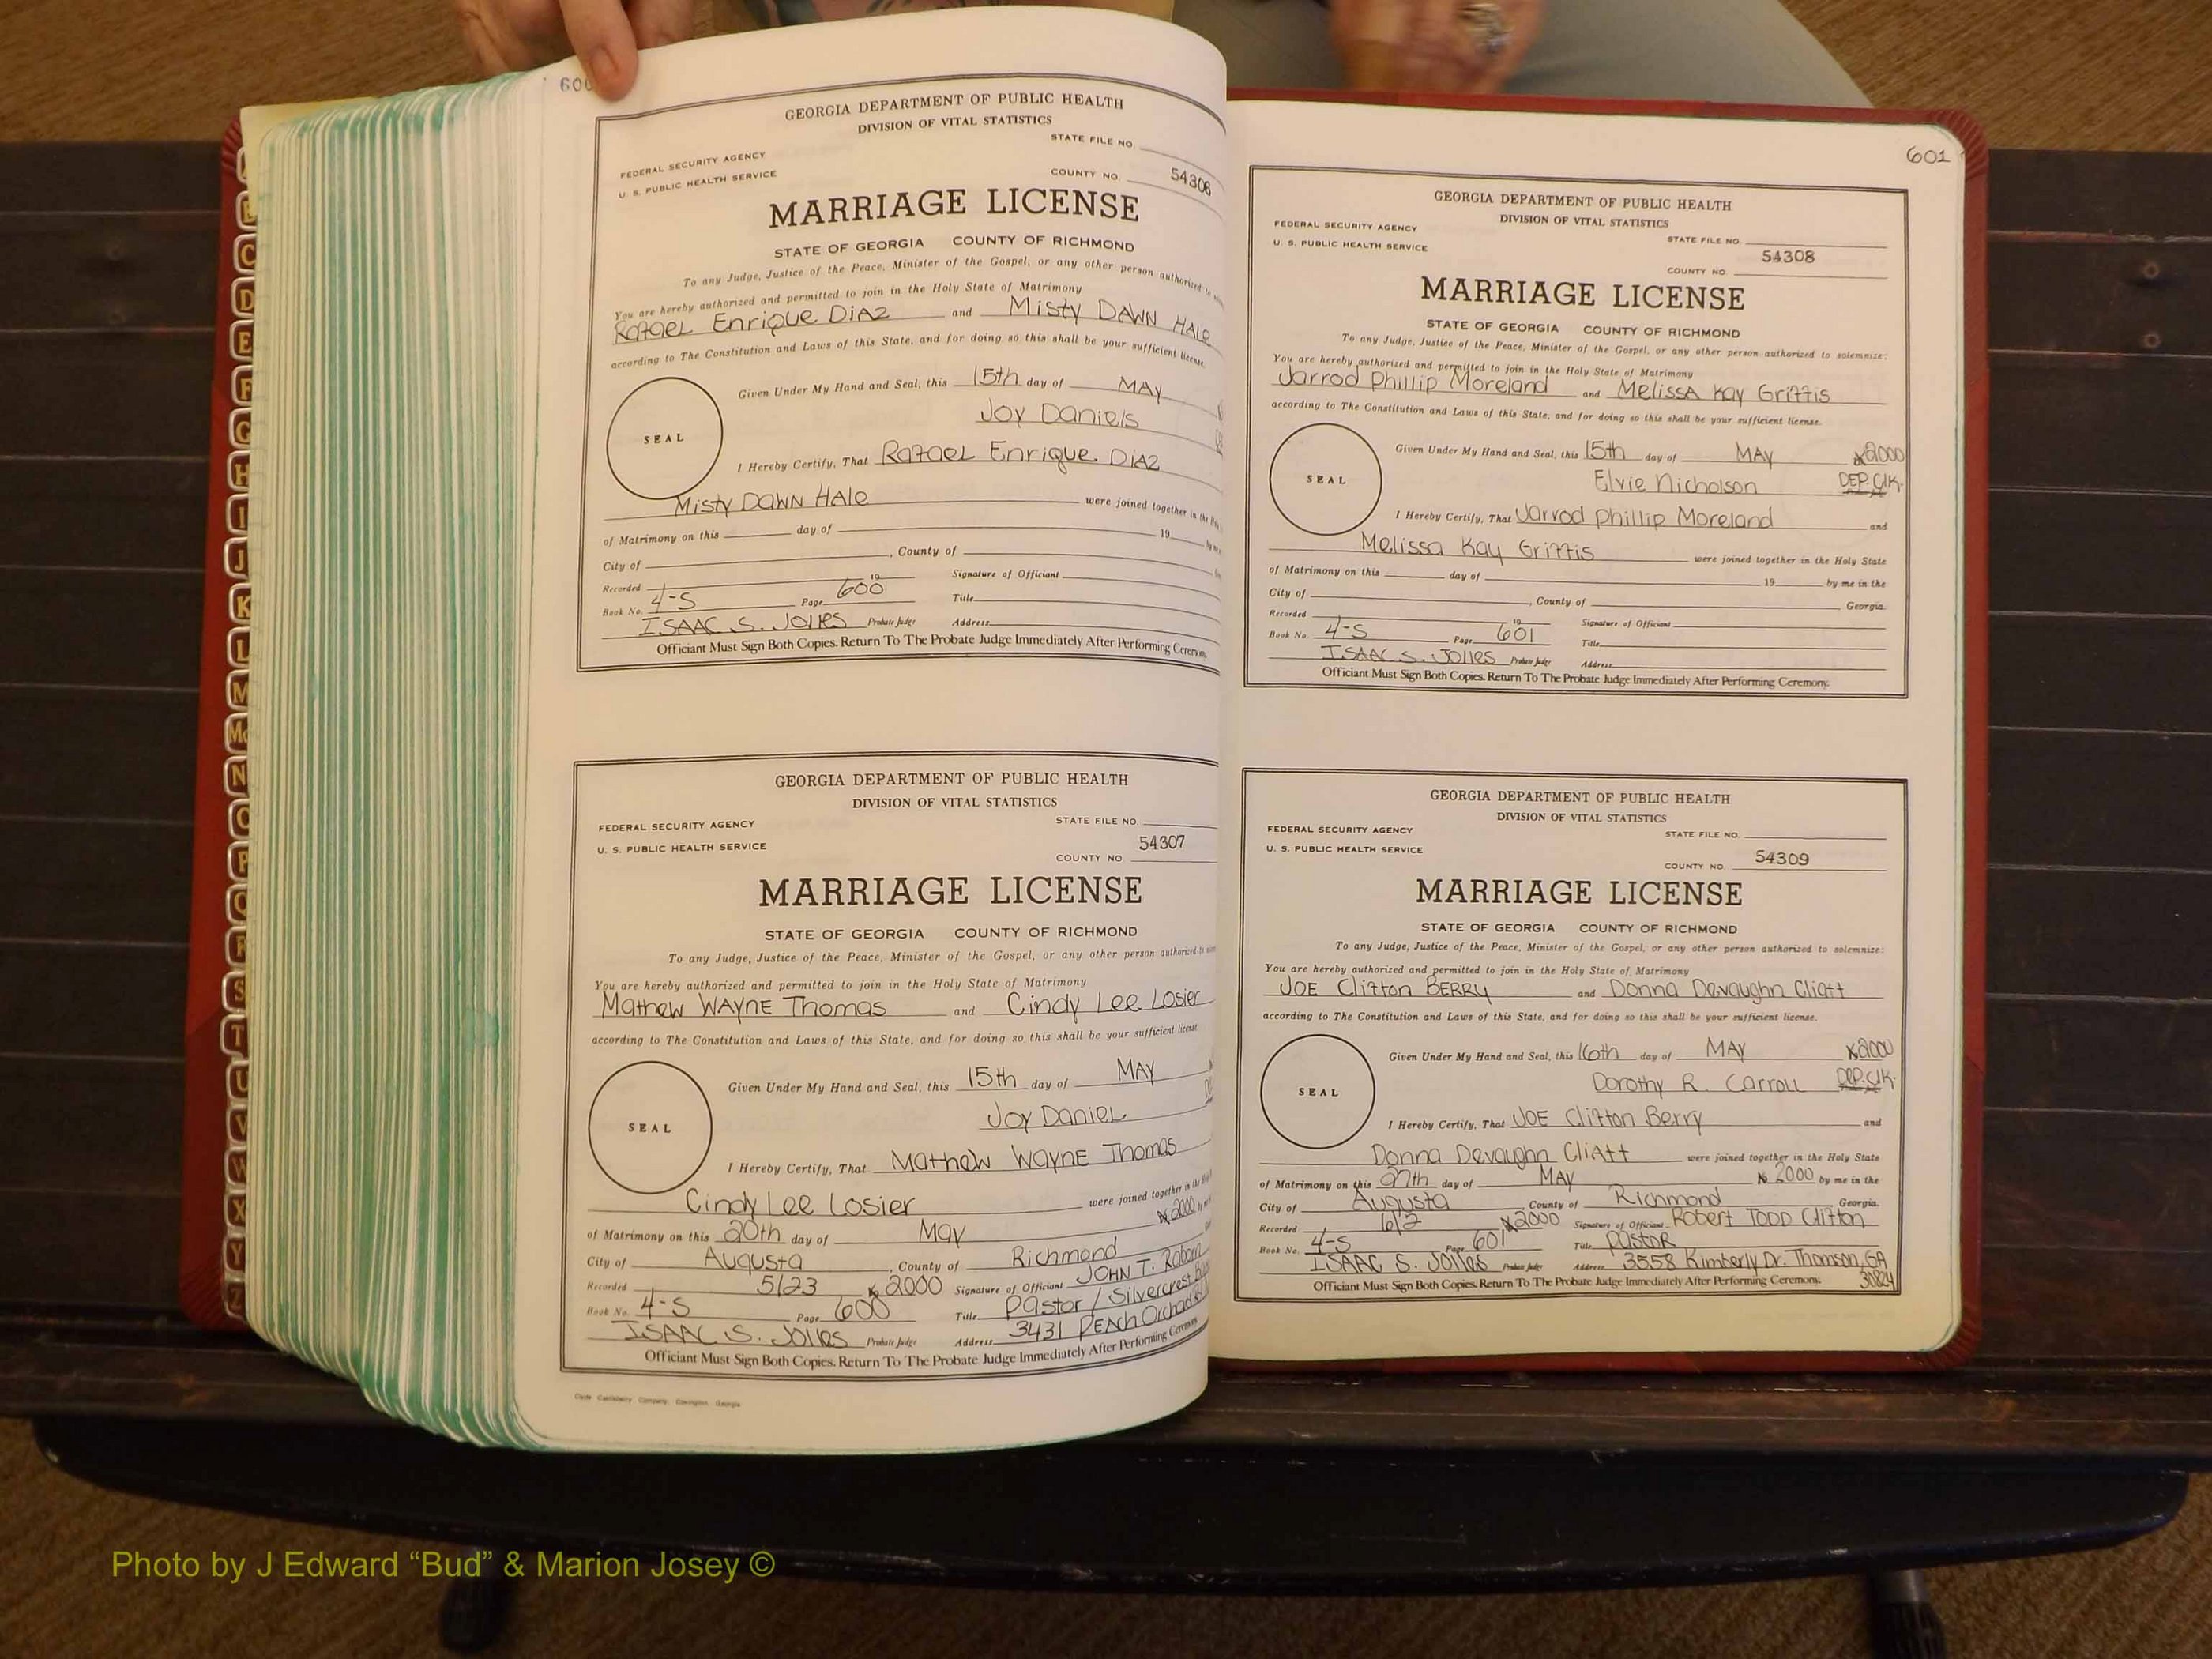 600
GEORGIA DEPARTMENT OF PUBLIC HEALTH
DIVISION OF VITAL STATISTICS
STATE FILE NO.
FEDERAL SECURITY AGENCY
U. S. PUBLIC HEALTH SERVICE
COUNTY NO. 54306
MARRIAGE LICENSE
STATE OF GEORGIA COUNTY OF RICHMOND
To any Judge, Justice of the Peace, Minister of the Gospel, or any other person authorized to
You are hereby authorized and permitted to join in the Holy State of Matrimony
Rafael Enrique Diaz and Misty Dawn Hale
according to The Constitution and Laws of this State, and for doing so this shall be your sufficient license.
Given Under My Hand and Seal, this 15th day of MAY
Joy Daniels
SEAL
I Hereby Certify, That Rafael Enrique Diaz
Misty Dawn Hale were joined together in the
of Matrimony on this day of 19
City of , County of
Recorded 19 Signature of Officiant
Book No. 4-S Page 600 Title
ISAAC S. Jolles Probate Judge Address
Officiant Must Sign Both Copies. Return To The Probate Judge Immediately After Performing Ceremony.
GEORGIA DEPARTMENT OF PUBLIC HEALTH
DIVISION OF VITAL STATISTICS
STATE FILE NO.
FEDERAL SECURITY AGENCY
U. S. PUBLIC HEALTH SERVICE
COUNTY NO. 54307
MARRIAGE LICENSE
STATE OF GEORGIA COUNTY OF RICHMOND
To any Judge, Justice of the Peace, Minister of the Gospel, or any other person authorized to
You are hereby authorized and permitted to join in the Holy State of Matrimony
Mathew Wayne Thomas and Cindy Lee Losier
according to The Constitution and Laws of this State, and for doing so this shall be your sufficient license.
Given Under My Hand and Seal, this 15th day of MAY
Joy Daniel
SEAL
I Hereby Certify, That Mathew Wayne Thomas
Cindy Lee Losier were joined together in the
of Matrimony on this 20th day of May 2000
City of Augusta , County of Richmond
Recorded 5/23 2000 Signature of Officiant JOHN T.
Book No. 4-S Page 600 Title Pastor / Silvercrest
ISAAC S. Jolles Probate Judge Address 3431 Peach Orchard
Officiant Must Sign Both Copies. Return To The Probate Judge Immediately After Performing Ceremony.
601
GEORGIA DEPARTMENT OF PUBLIC HEALTH
DIVISION OF VITAL STATISTICS
FEDERAL SECURITY AGENCY
STATE FILE NO.
U. S. PUBLIC HEALTH SERVICE
COUNTY NO. 54308
MARRIAGE LICENSE
STATE OF GEORGIA COUNTY OF RICHMOND
To any Judge, Justice of the Peace, Minister of the Gospel, or any other person authorized to solemnize:
You are hereby authorized and permitted to join in the Holy State of Matrimony
Jarrod Phillip Moreland and Melissa Kay Griffis
according to The Constitution and Laws of this State, and for doing so this shall be your sufficient license.
Given Under My Hand and Seal, this 15th day of MAY 2000
Elvie Nicholson DEP. Clk.
SEAL
I Hereby Certify, That Jarrod Phillip Moreland and
Melissa Kay Griffis were joined together in the Holy State
of Matrimony on this day of 19 by me in the
City of , County of Georgia.
Recorded 19 Signature of Officiant
Book No. 4-S Page 601 Title
ISAAC S. Jolles Probate Judge Address
Officiant Must Sign Both Copies. Return To The Probate Judge Immediately After Performing Ceremony.
GEORGIA DEPARTMENT OF PUBLIC HEALTH
DIVISION OF VITAL STATISTICS
FEDERAL SECURITY AGENCY
STATE FILE NO.
U. S. PUBLIC HEALTH SERVICE
COUNTY NO. 54309
MARRIAGE LICENSE
STATE OF GEORGIA COUNTY OF RICHMOND
To any Judge, Justice of the Peace, Minister of the Gospel, or any other person authorized to solemnize:
You are hereby authorized and permitted to join in the Holy State of Matrimony
JOE Clifton BERRY and Donna Devaughn Cliatt
according to The Constitution and Laws of this State, and for doing so this shall be your sufficient license.
Given Under My Hand and Seal, this 16th day of MAY 2000
Dorothy R. Carroll Dep. Clk.
SEAL
I Hereby Certify, That JOE Clifton Berry and
Donna Devaughn Cliatt were joined together in the Holy State
of Matrimony on this 27th day of MAY 2000 by me in the
City of Augusta County of Richmond Georgia.
Recorded 6/2 2000 Signature of Officiant Robert TODD Clifton
Book No. 4-S Page 601 Title Pastor
ISAAC S. Jolles Probate Judge Address 3558 Kimberly Dr. Thomson, GA
30824
Officiant Must Sign Both Copies. Return To The Probate Judge Immediately After Performing Ceremony.
C
D
E
F
G
H
I
J
K
L
M
Mc
N
O
P
Q
R
S
T
U
V
W
X
Y
Z
Photo by J Edward “Bud” & Marion Josey ©